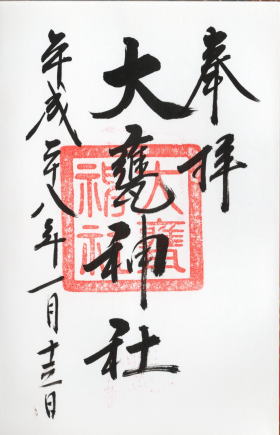 奉拝
大甕神社
平成二十八年一月十三日
大甕神社